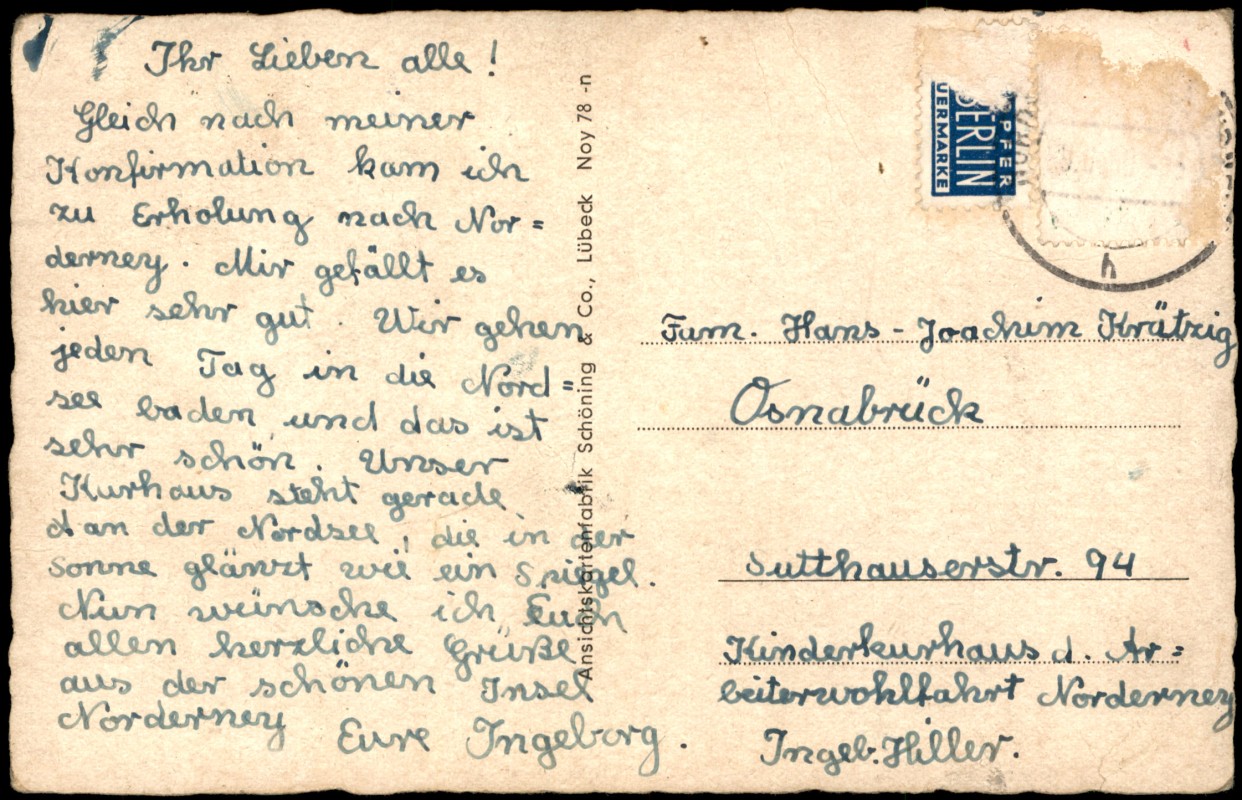 Ihr Lieben alle!
Gleich nach meiner
Konfirmation kam ich
zu Erholung nach Nor=
derney. Mir gefällt es
hier sehr gut. Wir gehen
jeden Tag in die Nord=
see baden und das ist
sehr schön. Unser
Kurhaus steht gerade
an der Nordsee, die in der
Sonne glänzt wie ein Spiegel.
Nun wünsche ich Euch
allen herzliche Grüße
aus der schönen Insel
Norderney
Eure Ingeborg.
Ansichtskartenfabrik Schöning & Co., Lübeck Noy 78 -n
BERLIN
UERMARKE
h
Fam. Hans-Joachim Krätzig
Osnabrück
Sutthauserstr. 94
Kinderkurhaus d. Ar=
beiterwohlfahrt Norderney
Ingeb. Hiller.